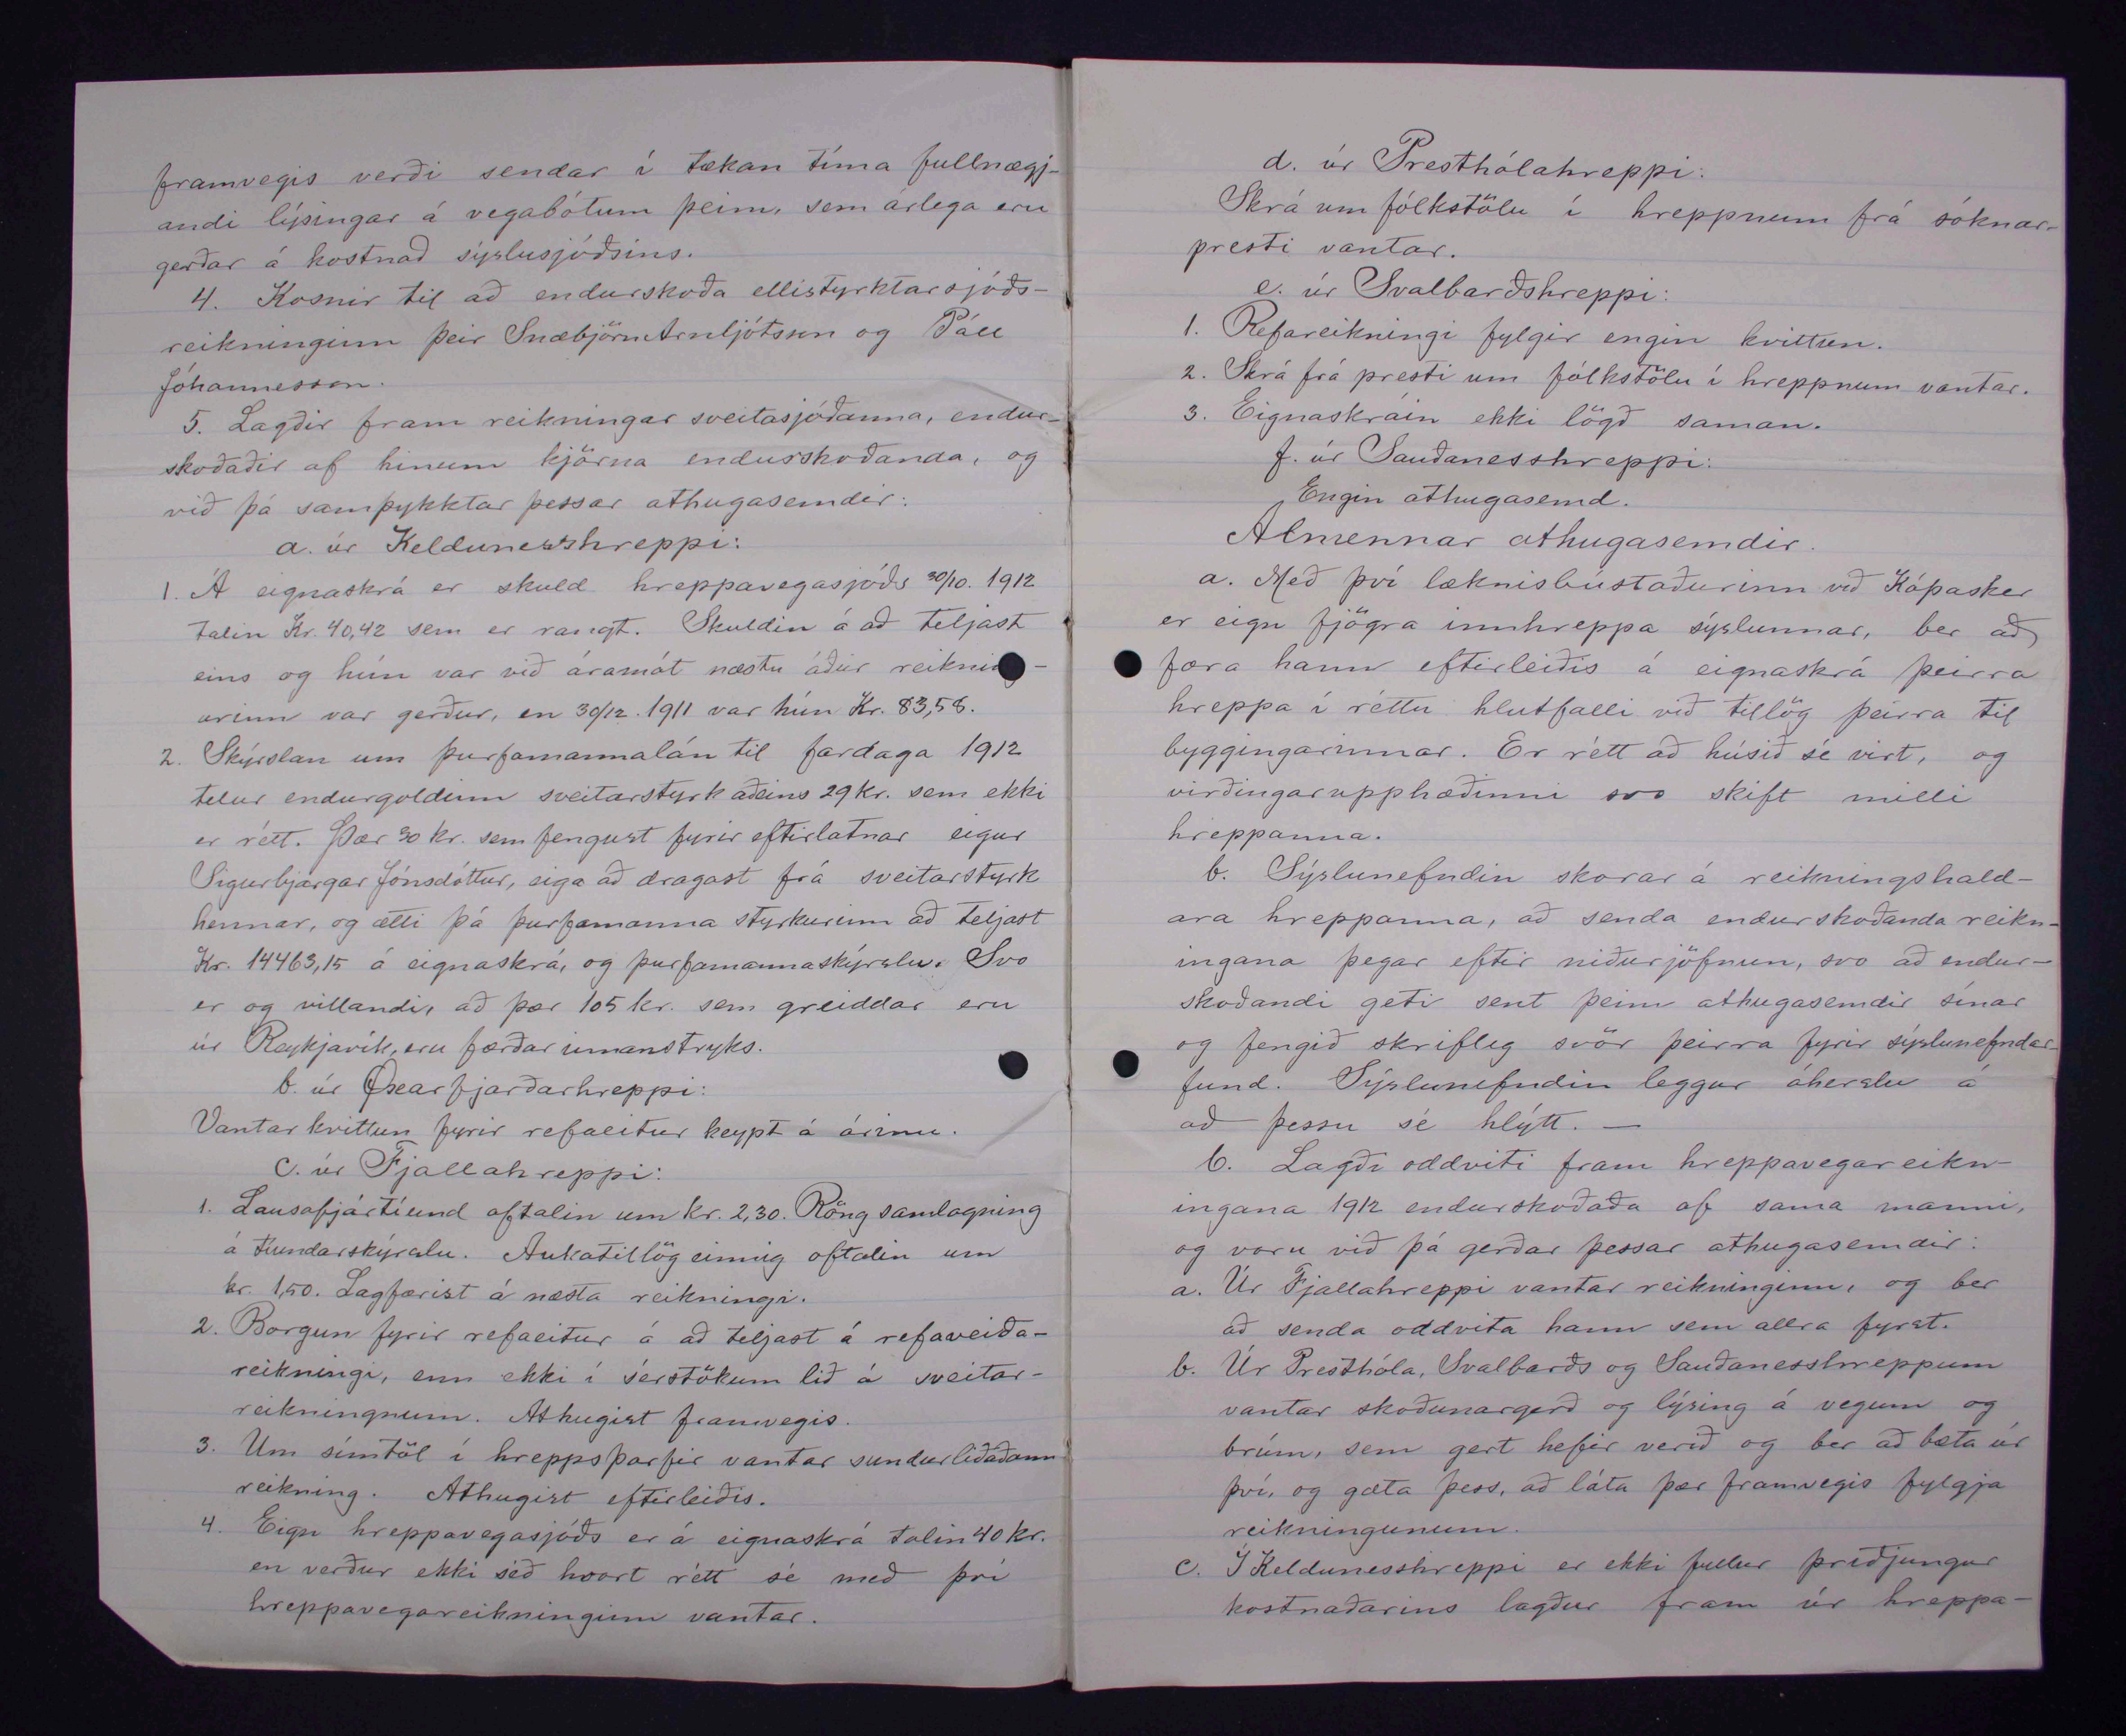 framvegis verði sendar í tækan tíma fullnægj-
andi lýsingar á vegabótum þeim, sem árlega eru
gerðar á kostnað sýslusjóðsins.
4. Kosnir til að endurskoða ellistyrktarsjóðs-
reikninginn þeir Snæbjörn Arnljótsson og Páll
Jóhannesson.
5. Lagðir fram reikningar sveitasjóðanna, endur-
skoðaðir af hinum kjörna endurskoðanda, og
við þá samþykktar þessar athugasemdir:
a. úr Kelduneshreppi:
1. Á eignaskrá er skuld hreppavegasjóðs 30/10. 1912
talin Kr. 40,42 sem er rangt. Skuldin á að teljast
eins og hún var við áramót næstu áður reikning-
urinn var gerður, en 30/12. 1911 var hún Kr. 83,58.
2. Skýrslan um þurfamannalán til fardaga 1912
telur endurgoldinn sveitarstyrk aðeins 29 kr. sem ekki
er rétt. Þær 30 kr. sem fengust fyrir eftirlatnar eigur
Sigurbjargar Jónsdóttur, eiga að dragast frá sveitarstyrk
hennar, og ætti þá þurfamanna styrkurinn að teljast
Kr. 14463,15 á eignaskrá, og þurfamannaskýrslu. Svo
er og villandi, að þær 105 kr. sem greiddar eru
úr Reykjavík, eru færðar innanstryks.
b. úr Öxarfjarðarhreppi:
Vantar kvittun fyrir refaeitur keypt á árinu.
c. úr Fjallahreppi:
1. Lausafjártíund oftalin um kr. 2,30. Röng samlagning
á tíundarskýrslu. Aukatillög einnig oftalin um
kr. 1,50. Lagfærist á næsta reikningi.
2. Borgun fyrir refaeitur á að teljast á refaveiða-
reikningi, enn ekki í sérstökum lið á sveitar-
reikningnum. Athugist framvegis.
3. Um símtöl í hreppsþarfir vantar sundurliðaðann
reikning. Athugist eftirleiðis.
4. Eign hreppavegasjóðs er á eignaskrá talin 40 kr.
en verður ekki séð hvort rétt sé með því
hreppavegareikninginn vantar.
d. úr Presthólahreppi:
Skrá um fólkstölu í hreppnum frá sóknar-
presti vantar.
e. úr Svalbarðshreppi:
1. Refareikningi fylgir engin kvittun.
2. Skrá frá presti um fólkstölu í hreppnum vantar.
3. Eignaskráin ekki lögð saman.
f. úr Sauðanesshreppi:
Engin athugasemd.
Almennar athugasemdir.
a. Með því læknisbústaðurinn við Kópasker
er eign fjögra innhreppa sýslunnar, ber að
færa hann eftirleiðis á eignaskrá þeirra
hreppa í réttu hlutfalli við tillög þeirra til
byggingarinnar. Er rétt að húsið sé virt, og
virðingarupphæðinni svo skift milli
hreppanna.
b. Sýslunefndin skorar á reikningshald-
ara hreppanna, að senda endurskoðanda reikn-
ingana þegar eftir niðurjöfnun, svo að endur-
skoðandi geti sent þeim athugasemdir sínar
og fengið skrifleg svör þeirra fyrir sýslunefndar-
fund. Sýslunefndin leggur áherslu á
að þessu sé hlýtt. -
6. Lagði oddviti fram hreppavegareikn-
ingana 1912 endurskoðaða af sama manni,
og voru við þá gerðar þessar athugasemdir:
a. Úr Fjallahreppi vantar reikninginn, og ber
að senda oddvita hann sem allra fyrst.
b. Úr Presthóla, Svalbarðs og Sauðanesshreppum
vantar skoðunargerð og lýsing á vegum og
brúm, sem gert hefir verið og ber að bæta úr
því, og gæta þess, að láta þær framvegis fylgja
reikningunum.
c. Í Keldunesshreppi er ekki fullur þriðjungur
kostnaðarins lagður fram úr hreppa-